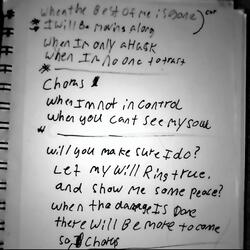 when the Best of me is gone
I will Be moving along
when Im only a Husk
when Im no one to trust
Chorus
when Im not in control
when you cant see my soul
will you make sure I do?
Let my will Ring true.
and show me some peace?
when the damage Is Done
there will Be more to come
so, Chorus